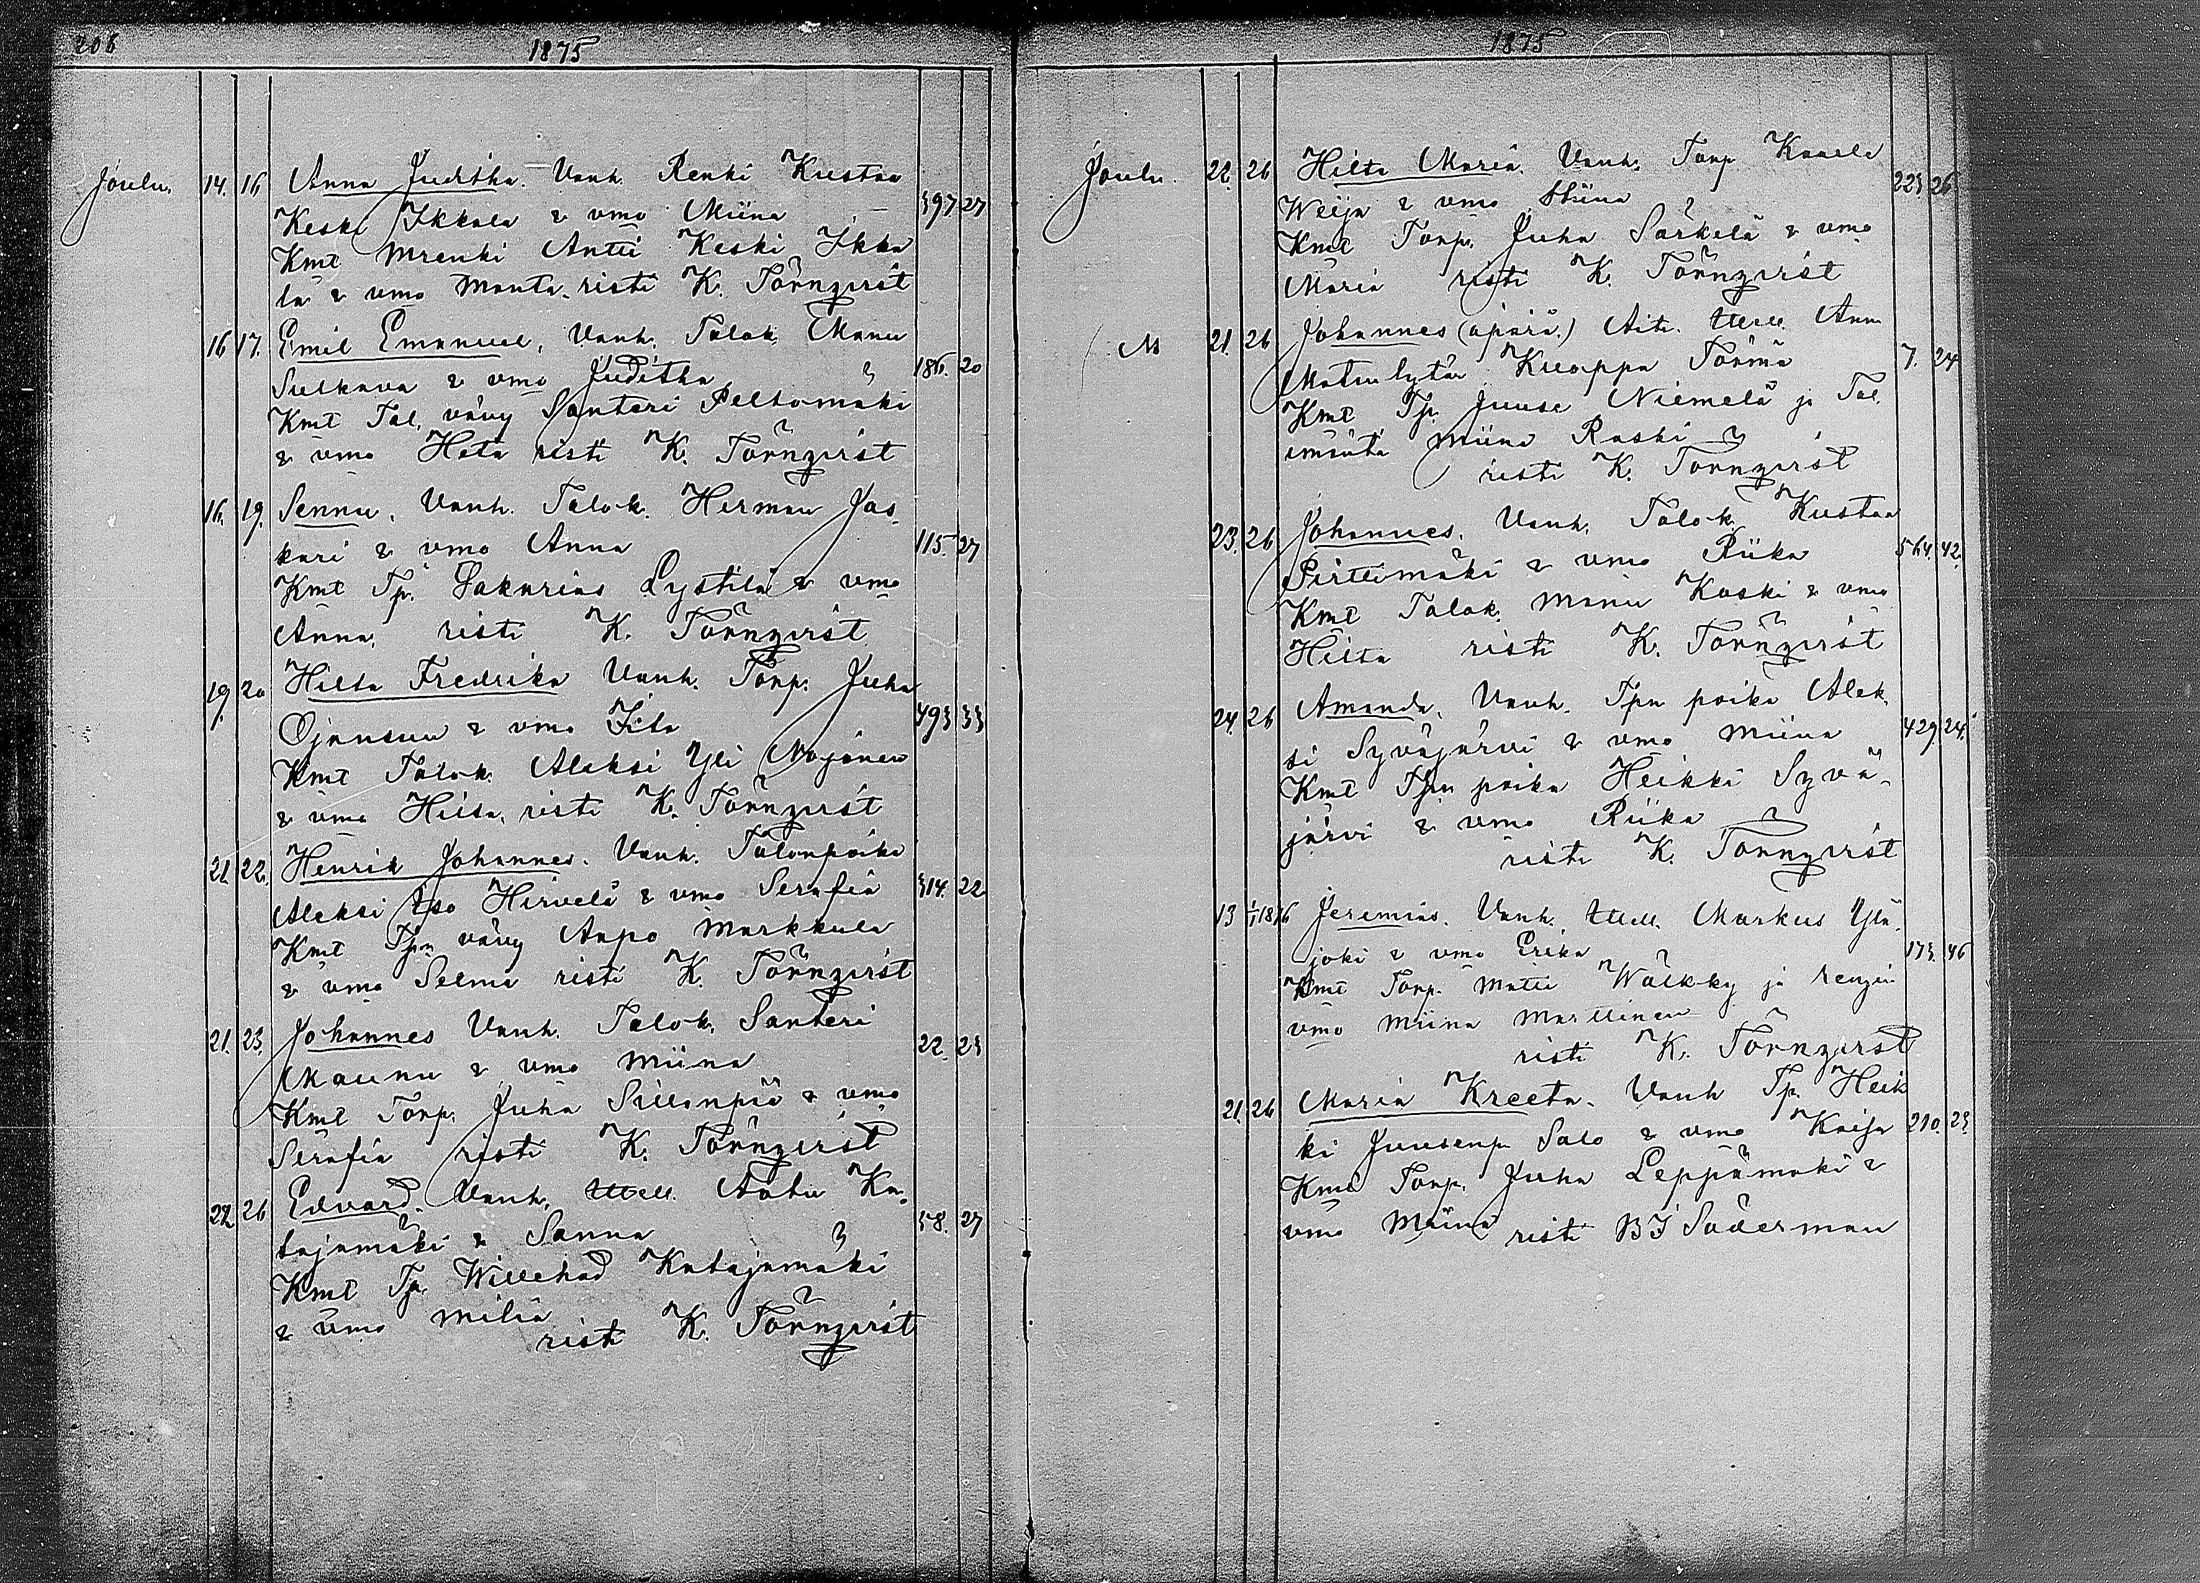 206
1875
Joulu. 14. 16 Anna Juditha. Vanh. Renki Kustaa
Keski Ikkala & vmo Miina 397 27
Kmt Mrenki Antti Keski Ikka
la & vmo Manta. risti K. Törnqvist
16 17. Emil Emanuel, Vanh. Talok. Manu
Sulkava & vmo Juditha 186. 20
Kmt Tal. vävy Santeri Peltomäki
& vmo Heta risti K. Törnqvist
16. 19. Sennu, Vanh. Talok. Herman Jas
kari & vmo Anna 115. 27
Kmt Tp. Sakarias Lystilä & vmo
Anna, risti K. Törnqvist
19. 20 Hilda Fredrika Vanh. Torp. Juha
Ojansuu & vmo Iita 493 33
Kmt Talok. Aleksi Yli Nojonen
& vmo Hilda, risti K. Törnqvist
21 22. Henrik Johannes. Vanh. Talonpoika
Aleksi Iso Hirvelä & vmo Serafia 314. 22
Kmt Tpn vävy Aapo Markkula
& vmo Selma risti K. Törnqvist
21. 23. Johannes Vanh. Talok. Santeri
Maunu & vmo Miina 22. 23
Kmt Torp. Juha Sillanpää & vmo
Serafia risti K. Törnqvist
22 26 Edvard. Vanh. Itsell. Aatu Ka
tajamäki & Sanna 58. 27
Kmt Tp. Willehad Katajamäki
& vmo Milia
risti K. Törnqvist
1875
Joulu. 22. 26 Hilta Maria. Vanh. Torp Kaarle
Weija & vmo Stiina 223. 26
Kmt Torp. Juha Särkelä & vmo
Maria risti K. Törnqvist
M 21. 26 Johannes (äpärä.) Äiti. Itsell. Anna
Matin tytär Kuoppa Törmä 7. 24
Kmt Tp. Juuse Niemelä ja Tal.
emäntä Miina Raski
risti K. Törnqvist
23. 26 Johannes. Vanh. Talok. Kustaa
Pirttimäki & vmo Riika 564. 42.
Kmt Talok. Manu Koski & vmo
Hilta risti K. Törnqvist
24. 26 Amanda, Vanh. Tpn poika Alek
si Syväjärvi & vmo Miina 429. 24.
Kmt Tpn poika Heikki Syvä-
järvi & vmo Riika
risti K. Törnqvist
13 1/1 1876 Jeremias. Vanh. Itsell. Markus Ylä
joki & vmo Erika 173. 46
Kmt Torp. Matti Wälkky ja rengin
vmo Miina Marttinen
risti K. Törnqvist
21. 26 Maria Kreeta. Vanh Tp. Heik
ki Juusenp. Salo & vmo Kaisa 210. 23.
Kmt Torp. Juha Leppämäki &
vmo Miina risti B I Söderman